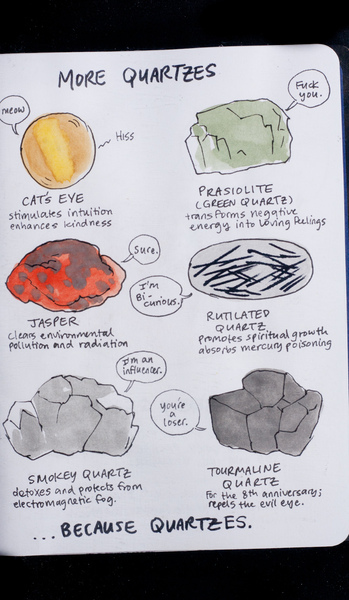 MORE QUARTZES
meow
Hiss
CAT'S EYE
stimulates intuition
enhances kindness
Fuck
you.
PRASIOLITE
(GREEN QUARTZ)
transforms negative
energy into loving feelings
Sure.
JASPER
clears environmental
pollution and radiation
I'm
Bi-
curious.
RUTILATED
QUARTZ
promotes spiritual growth
absorbs mercury poisoning
I'm an
influencer.
SMOKEY QUARTZ
detoxes and protects from
electromagnetic fog.
you're
a
loser.
TOURMALINE
QUARTZ
For the 8th anniversary;
repels the evil eye.
...BECAUSE QUARTZES.